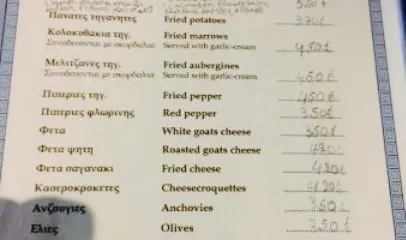 5.00€
Πατατες τηγανητες Fried potatoes 3.70€
Κολοκυθακια τηγ. Fried marrows
Συνοδευονται με σκορδαλια Served with garlic-cream 4.50€
Μελιτζανες τηγ. Fried aubergines
Συνοδευονται με σκορδαλια Served with garlic-cream 4.50€
Πιπεριες τηγ. Fried pepper 4.50€
Πιπεριες φλωρινης Red pepper 3.50€
Φετα White goats cheese 3.50€
Φετα ψητη Roasted goats cheese 4.20€
Φετα σαγανακι Fried cheese 4.20€
Κασεροκροκετες Cheesecroquettes 4.20€
Ανζουγιες Anchovies 3.50€
Ελιες Olives 3.50€